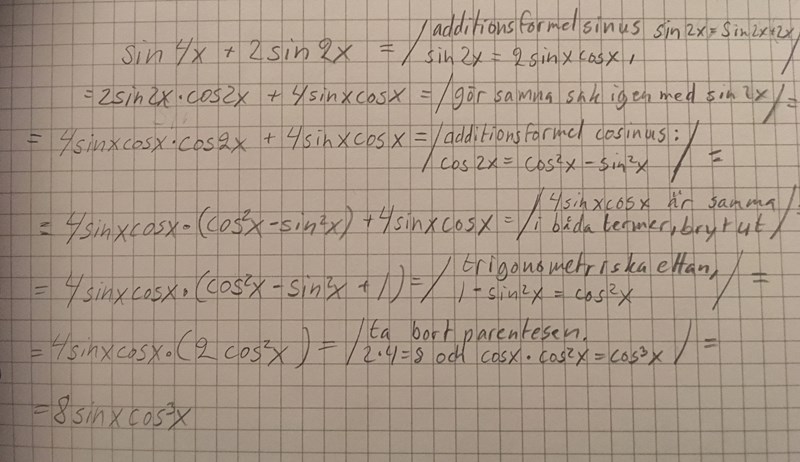 sin 4x + 2 sin 2x = / additionsformel sinus sin 2x = sin 2x+2x /
sin 2x = 2 sin x cos x,
= 2 sin 2x · cos 2x + 4 sin x cos x = / gör samma sak igen med sin 2x / =
= 4 sin x cos x · cos 2x + 4 sin x cos x = / additionsformel cosinus:
cos 2x = cos²x - sin²x / =
= 4 sin x cos x · (cos²x - sin²x) + 4 sin x cos x = / 4 sin x cos x är samma
i båda termer, bryt ut / =
= 4 sin x cos x · (cos²x - sin²x + 1) = / trigonometriska ettan,
1 - sin²x = cos²x / =
= 4 sin x cos x · (2 cos²x) = / ta bort parentesen.
2·4=8 och cos x · cos²x = cos³x / =
= 8 sin x cos³x